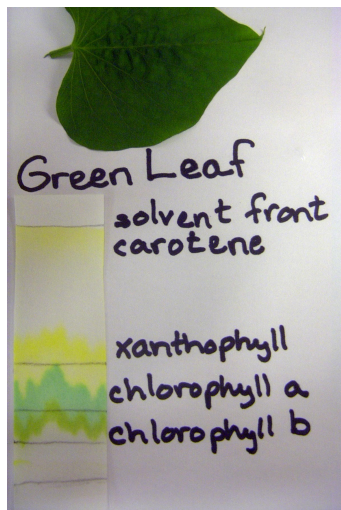 Green Leaf
solvent front
carotene
xanthophyll
chlorophyll a
chlorophyll b